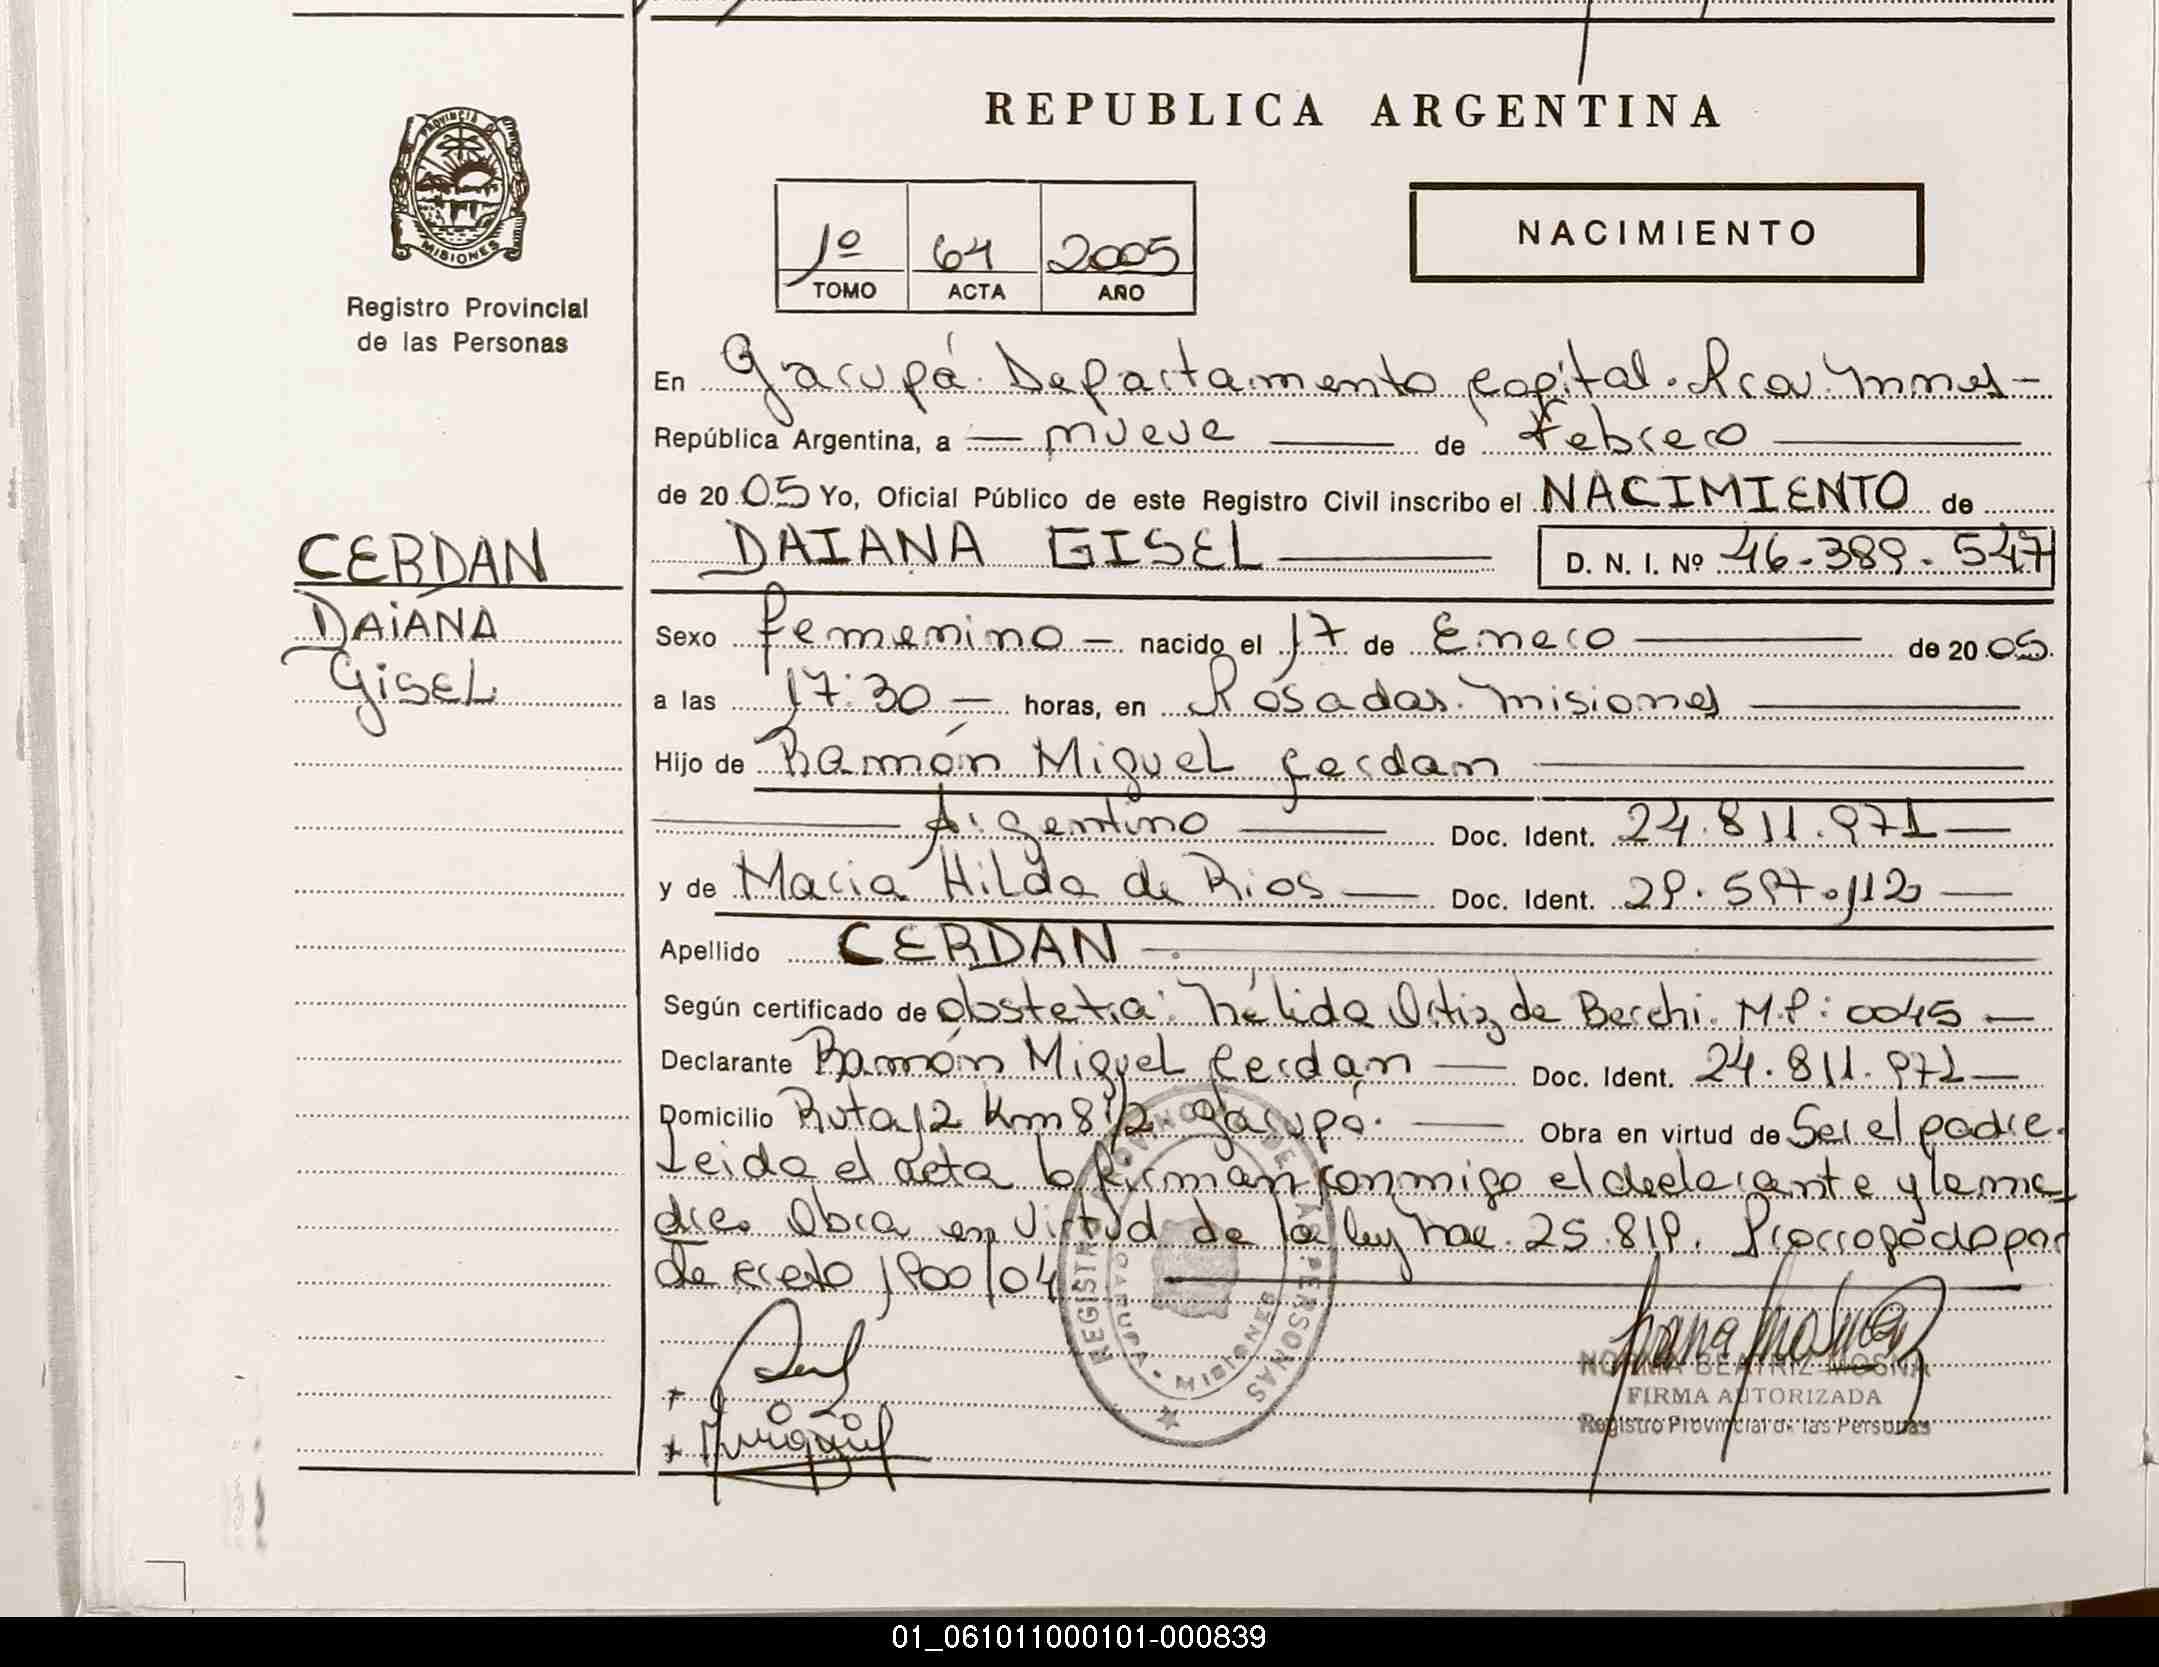 REPUBLICA ARGENTINA
PROVINCIA DE MISIONES
Registro Provincial
de las Personas
1º 64 2005
TOMO ACTA AÑO
NACIMIENTO
En Garupá. Departamento Capital. Pcia. Mnes-
República Argentina, a — nueve — de Febrero —
de 2005 Yo, Oficial Público de este Registro Civil inscribo el NACIMIENTO de
DAIANA GISEL — D. N. I. Nº 46.389.547
CERDAN
DAIANA
GISEL
Sexo femenino — nacido el 17 de Enero — de 2005.
a las 17:30 — horas, en Posadas. Misiones —
Hijo de Ramón Miguel Cerdan —
— Argentino — Doc. Ident. 24.811.971 —
y de Maria Hilda de Rios — Doc. Ident. 29.597.112 —
Apellido CERDAN —
Según certificado de obstetra: Nélida Ortiz de Berchi. M.P: 0045 —
Declarante Ramón Miguel Cerdan — Doc. Ident. 24.811.971 —
Domicilio Ruta 12 Km 8 1/2 Garupá. — Obra en virtud de Ser el padre.
Leida el acta la firman conmigo el declarante y la ma-
dre. Obra en virtud de la ley nac. 25.819. Prorrogado por
decreto 1900/04 —
REGISTRO PROVINCIAL DE LAS PERSONAS
GARUPA • MISIONES
NORMA BEATRIZ MOSNA
FIRMA AUTORIZADA
Registro Provincial de las Personas
01_061011000101-000839